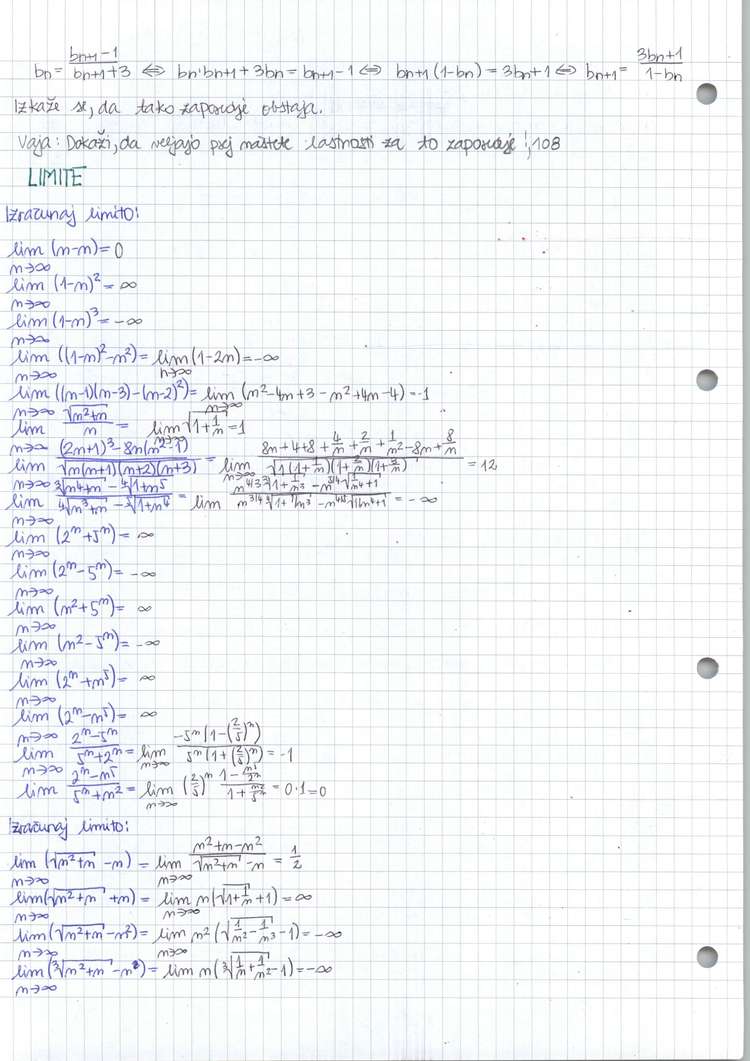 bn = (bn+1 - 1)/(bn+1 + 3) ⇔ bn·bn+1 + 3bn = bn+1 - 1 ⇔ bn+1 (1-bn) = 3bn+1 ⇔ bn+1 = (3bn+1)/(1-bn)
Izkaže se, da tako zaporedje obstaja.
Vaja: Dokaži, da veljajo prej naštete lastnosti za to zaporedje!, 108
LIMITE
Izračunaj limito:
lim n→∞ (n-n) = 0
lim n→∞ (1-n)² = ∞
lim n→∞ (1-n)³ = -∞
lim n→∞ ((1-n)² - n²) = lim n→∞ (1-2n) = -∞
lim n→∞ ((n-1)(n-3) - (n-2)²) = lim n→∞ (n² - 4n + 3 - n² + 4n - 4) = -1
lim n→∞ √(n²+n)/n = lim n→∞ √(1 + 1/n) = 1
lim n→∞ ((2n+1)³ - 8n(n²-1))/√(n(n+1)(n+2)(n+3)) = lim n→∞ (8n + 4 + 8 + 4/n + 2/n + 1/n² - 8n + 8/n)/√(1(1+1/n)(1+2/n)(1+3/n)) = 12
lim n→∞ (∛(n⁴+n) - ∜(1+n⁵))/(∜(n³+n) - √(1+n⁴)) = lim = -∞
lim n→∞ (2ⁿ + 5ⁿ) = ∞
lim n→∞ (2ⁿ - 5ⁿ) = -∞
lim n→∞ (n² + 5ⁿ) = ∞
lim n→∞ (n² - 5ⁿ) = -∞
lim n→∞ (2ⁿ + n⁵) = ∞
lim n→∞ (2ⁿ - n⁵) = ∞
lim n→∞ (2ⁿ - 5ⁿ)/(5ⁿ + 2ⁿ) = lim n→∞ -5ⁿ(1 - (2/5)ⁿ)/5ⁿ(1 + (2/5)ⁿ) = -1
lim n→∞ (2ⁿ - n⁵)/(5ⁿ + n²) = lim n→∞ (2/5)ⁿ (1 - n⁵/2ⁿ)/(1 + n²/5ⁿ) = 0·1 = 0
Izračunaj limito:
lim n→∞ (√(n²+n) - n) = lim n→∞ (n²+n-n²)/(√(n²+n) - n) = 1/2
lim n→∞ (√(n²+n) + n) = lim n→∞ n(√(1 + 1/n) + 1) = ∞
lim n→∞ (√(n²+n) - n²) = lim n→∞ n²(√(1/n² - 1/n³) - 1) = -∞
lim n→∞ (∛(n²+n) - n) = lim n(∛(1/n + 1/n²) - 1) = -∞